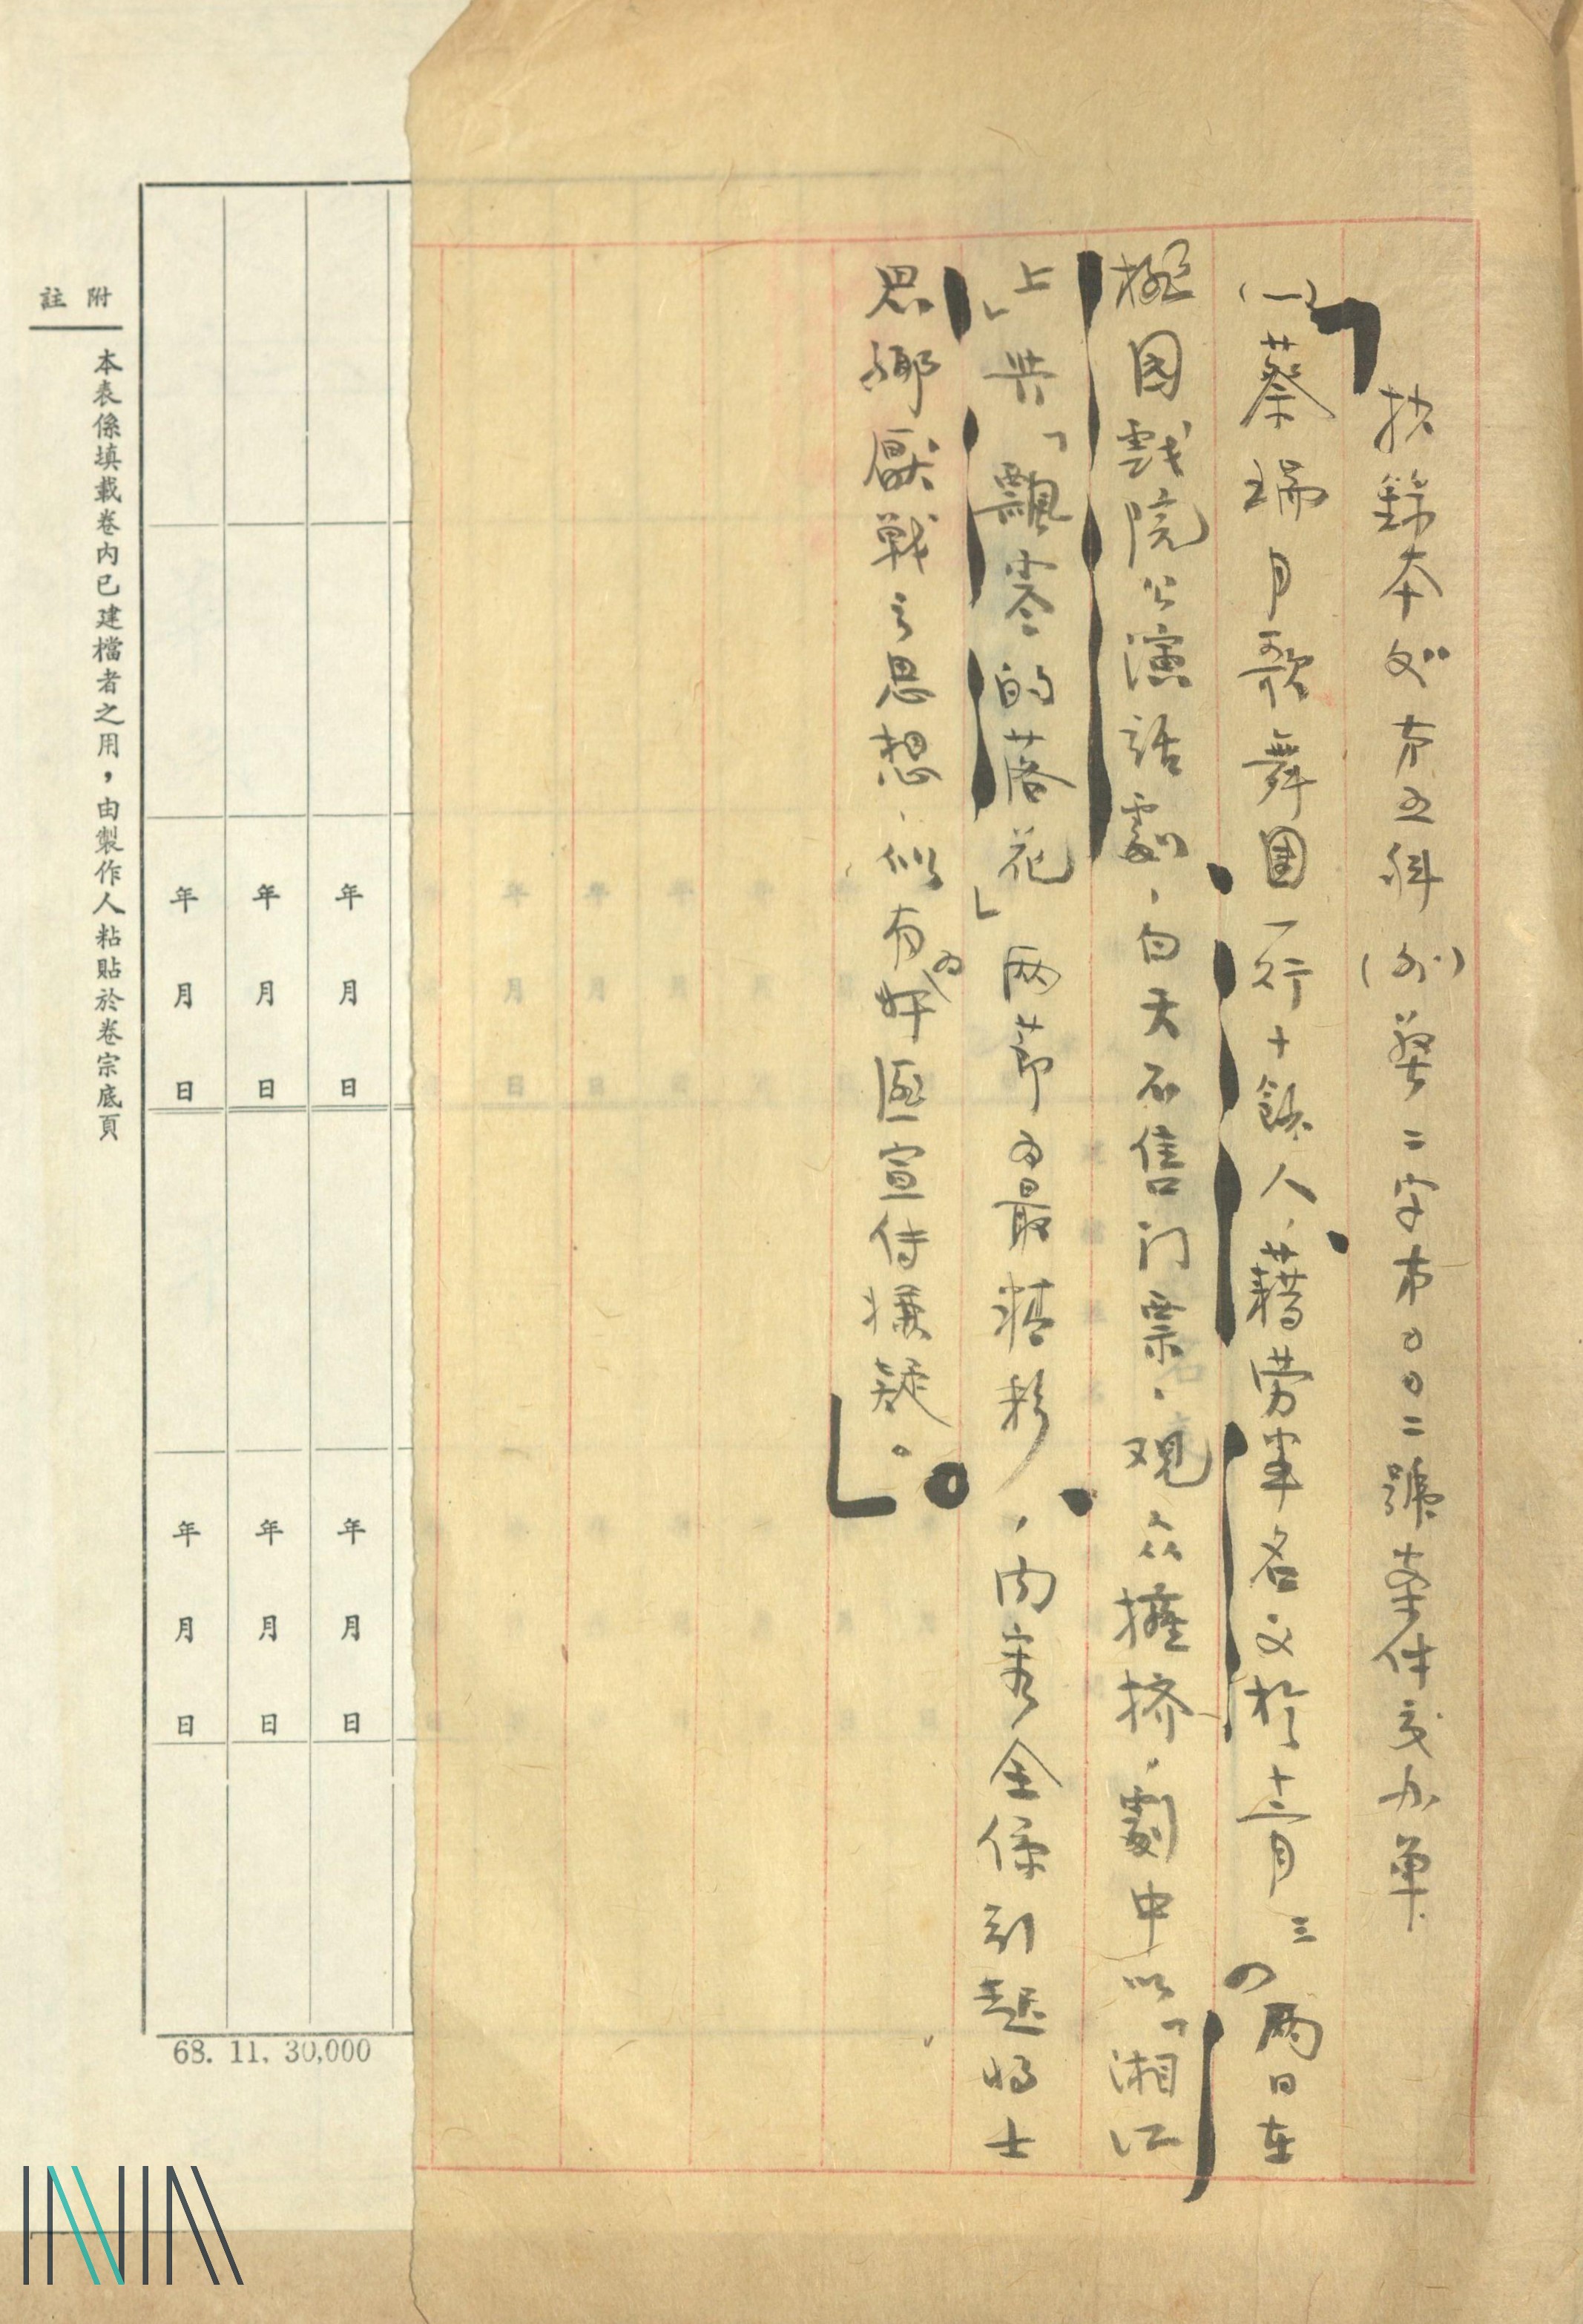 抄錄本处第五科(外)發二字第〇〇二號案件交办單
(一)蔡瑞月歌舞團一行十餘人,藉劳軍名义於十二月三の兩日在
極囯戲院公演話劇,白天不售门票,观众擁挤,劇中以「湘江
上」與「飄零的落花」兩節为最精彩,内容全係引起将士
思鄉厭戰之思想,似有为奸匪宣传嫌疑。
附註
本表係填載卷內已建檔者之用,由製作人粘貼於卷宗底頁
年 月 日
年 月 日
年 月 日
年 月 日
年 月 日
年 月 日
68. 11. 30,000